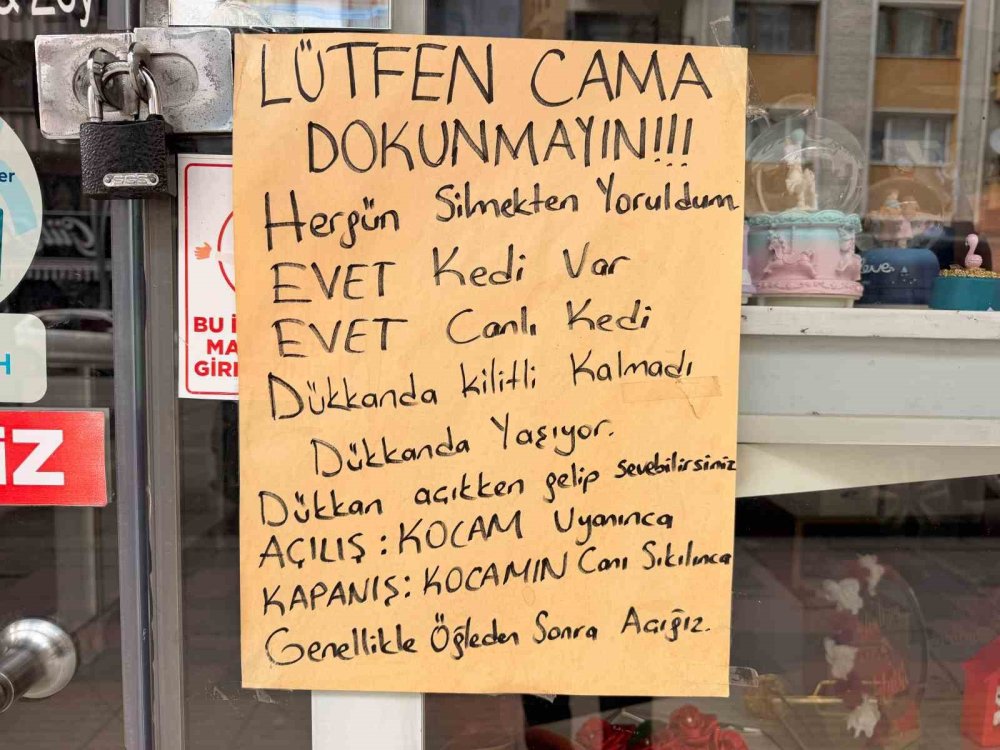 LÜTFEN CAMA
DOKUNMAYIN!!!
Hergün Silmekten Yoruldum
EVET Kedi Var
EVET Canlı Kedi
Dükkanda kilitli Kalmadı
Dükkanda Yaşıyor.
Dükkan açıkken gelip sevebilirsiniz
AÇILIŞ : KOCAM Uyanınca
KAPANIŞ: KOCAMIN Canı Sıkılınca
Genellikle Öğleden Sonra Açığız.
BU
MA
GİR
İZ
er
H